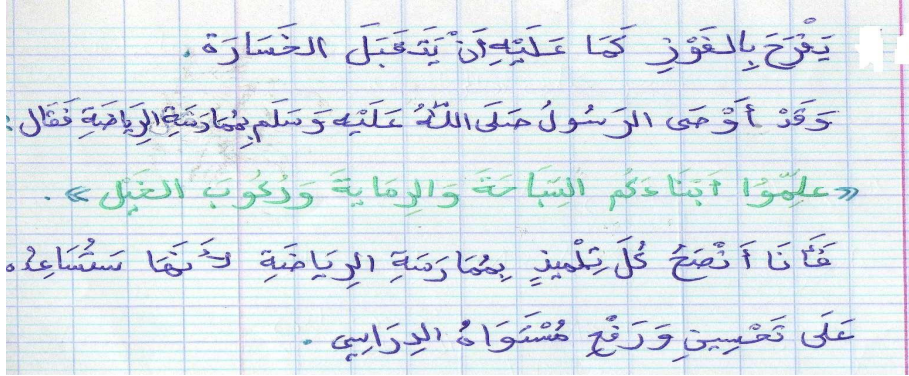 يَفْرَحَ بِالفَوْزِ كَمَا عَلَيْهِ أَنْ يَتَقَبَلَ الخَسَارَة.
وَقَدْ أَوْصَى الرَسُولُ صَلَى اللّهُ عَلَيْهِ وَسَلَم بِمُمَارَسَةِ الرِيَاضَةِ فَقَال:
«علِّمُوا أَبْنَاءَكُم السِّبَاحَةَ وَالرِمَايَةَ وَرُكُوبَ الخَيْل».
فَأَنَا أَنْصَحُ كُلَ تِلْمِيذٍ بِمُمَارَسَةِ الرِيَاضَةِ لأَنَهَا سَتُسَاعِدُه
عَلَى تَحْسِينِ وَرَفْعِ مُسْتَوَاهُ الدِرَاسِي.